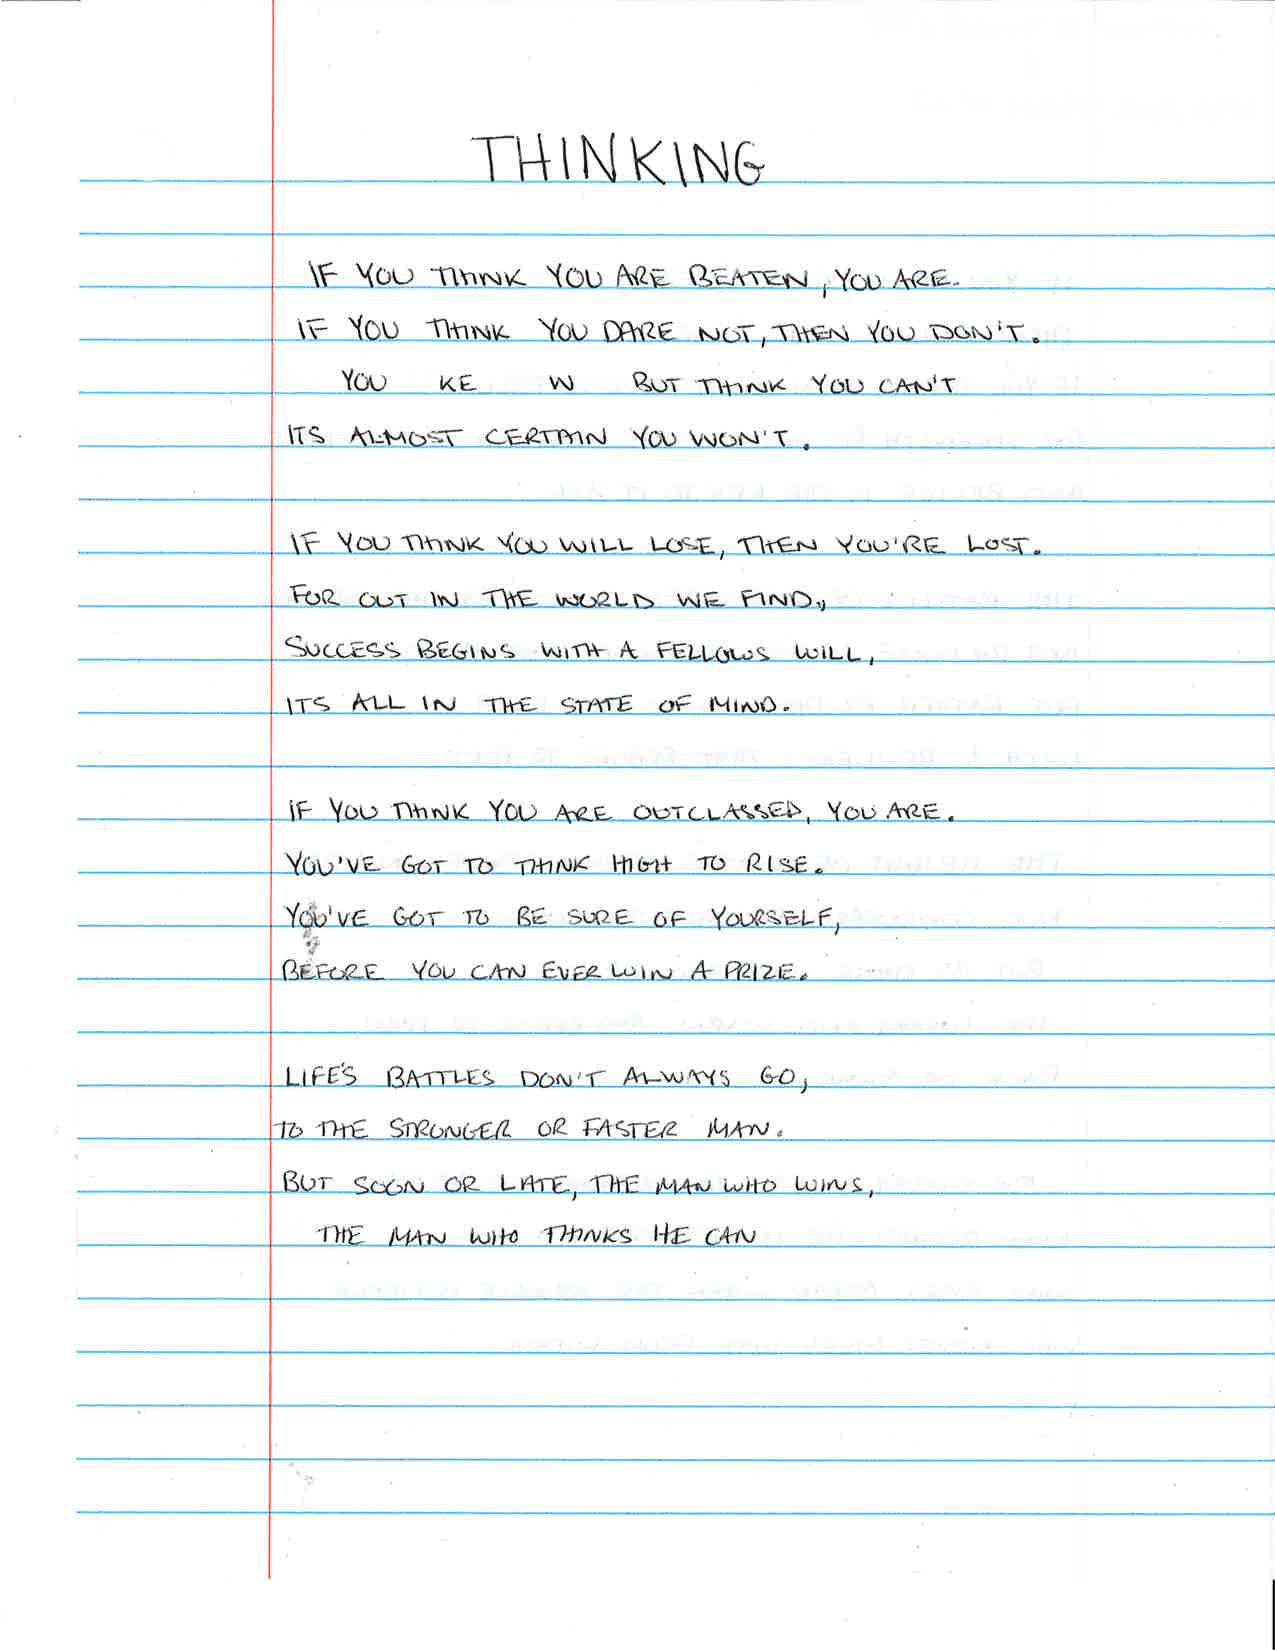 THINKING
IF YOU THINK YOU ARE BEATEN, YOU ARE.
IF YOU THINK YOU DARE NOT, THEN YOU DON'T.
YOU KE W BUT THINK YOU CAN'T
ITS ALMOST CERTAIN YOU WON'T.
IF YOU THINK YOU WILL LOSE, THEN YOU'RE LOST.
FOR OUT IN THE WORLD WE FIND,
SUCCESS BEGINS WITH A FELLOWS WILL,
ITS ALL IN THE STATE OF MIND.
IF YOU THINK YOU ARE OUTCLASSED, YOU ARE.
YOU'VE GOT TO THINK HIGH TO RISE.
YOU'VE GOT TO BE SURE OF YOURSELF,
BEFORE YOU CAN EVER WIN A PRIZE.
LIFE'S BATTLES DON'T ALWAYS GO,
TO THE STRONGER OR FASTER MAN.
BUT SOON OR LATE, THE MAN WHO WINS,
THE MAN WHO THINKS HE CAN